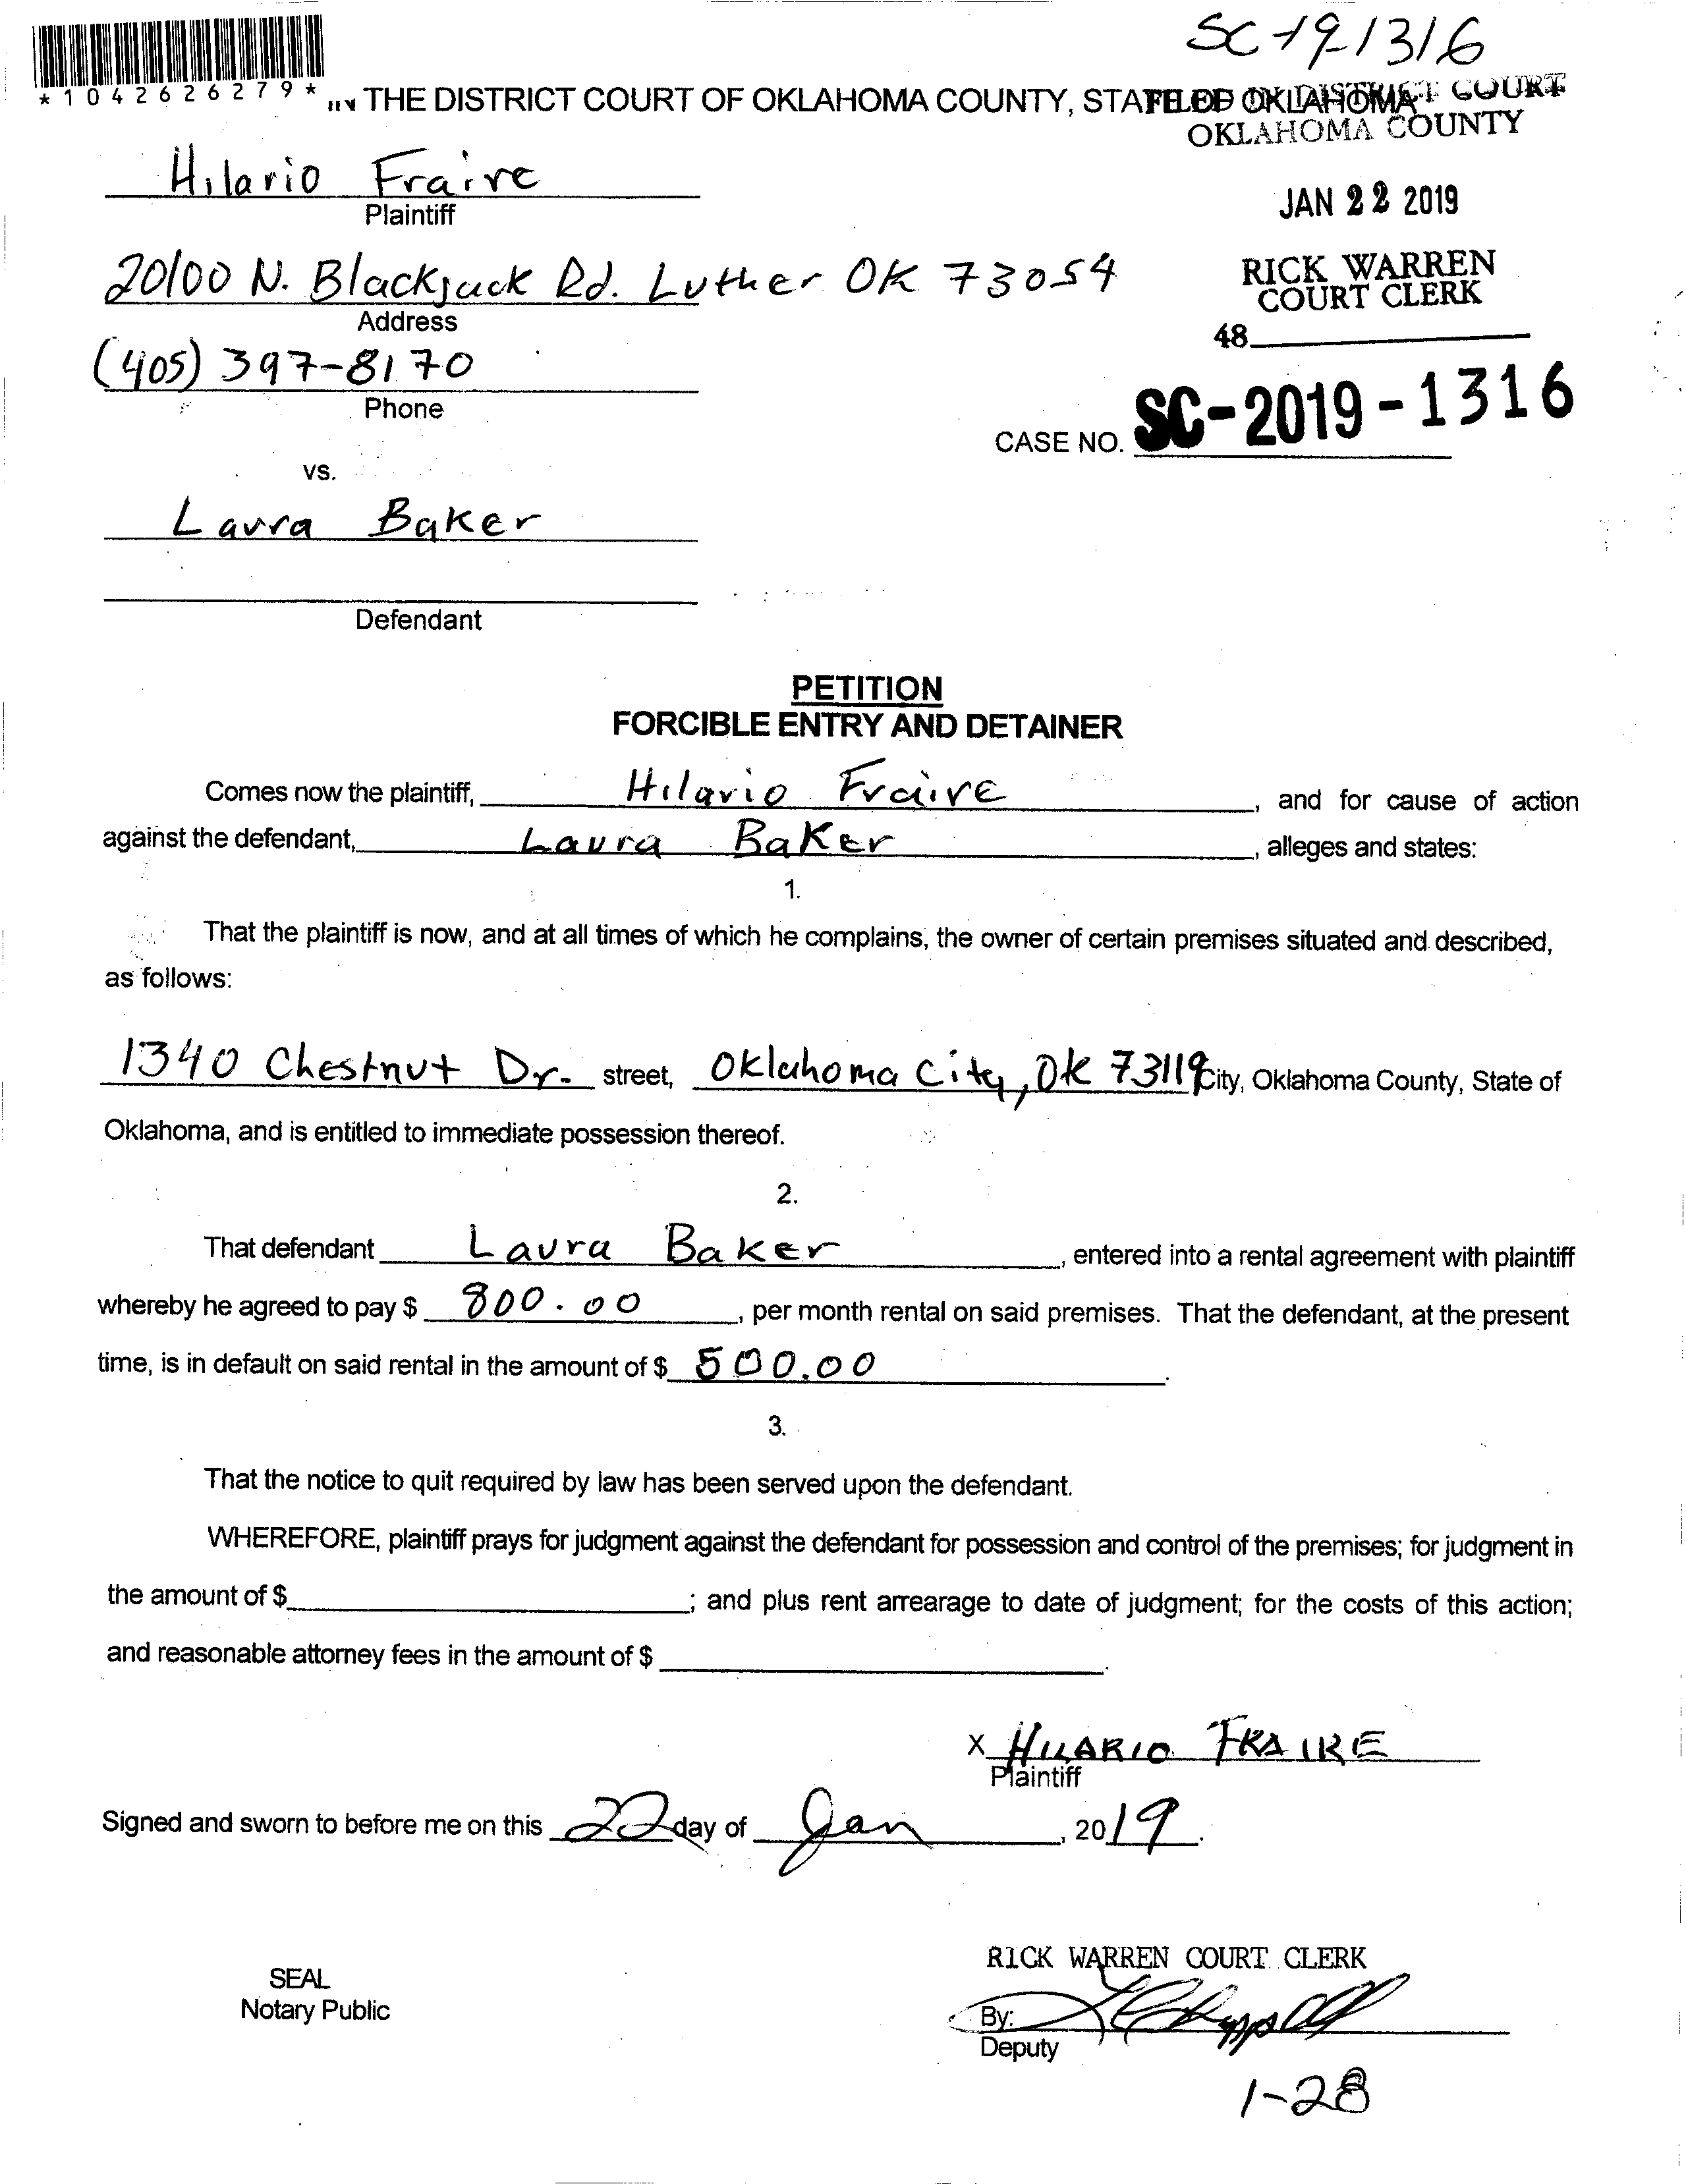 SC-19-1316
*1042626279* IN THE DISTRICT COURT OF OKLAHOMA COUNTY, STATE OF OKLAHOMA
FILED IN DISTRICT COURT
OKLAHOMA COUNTY
Hilario Fraire
Plaintiff
JAN 22 2019
20100 N. Blackjack Rd. Luther OK 73054
Address
RICK WARREN
COURT CLERK
48
(405) 397-8170
Phone
CASE NO. SC-2019-1316
vs.
Laura Baker
Defendant
PETITION
FORCIBLE ENTRY AND DETAINER
Comes now the plaintiff, Hilario Fraire, and for cause of action
against the defendant, Laura Baker, alleges and states:
1.
That the plaintiff is now, and at all times of which he complains, the owner of certain premises situated and described,
as follows:
1340 Chestnut Dr. street, Oklahoma City, OK 73119 City, Oklahoma County, State of
Oklahoma, and is entitled to immediate possession thereof.
2.
That defendant Laura Baker, entered into a rental agreement with plaintiff
whereby he agreed to pay $ 800.00, per month rental on said premises. That the defendant, at the present
time, is in default on said rental in the amount of $ 500.00.
3.
That the notice to quit required by law has been served upon the defendant.
WHEREFORE, plaintiff prays for judgment against the defendant for possession and control of the premises; for judgment in
the amount of $ ; and plus rent arrearage to date of judgment; for the costs of this action;
and reasonable attorney fees in the amount of $ .
X HILARIO FRAIRE
Plaintiff
Signed and sworn to before me on this 22 day of Jan, 2019.
RICK WARREN COURT CLERK
SEAL
Notary Public
By:
Deputy
1-28